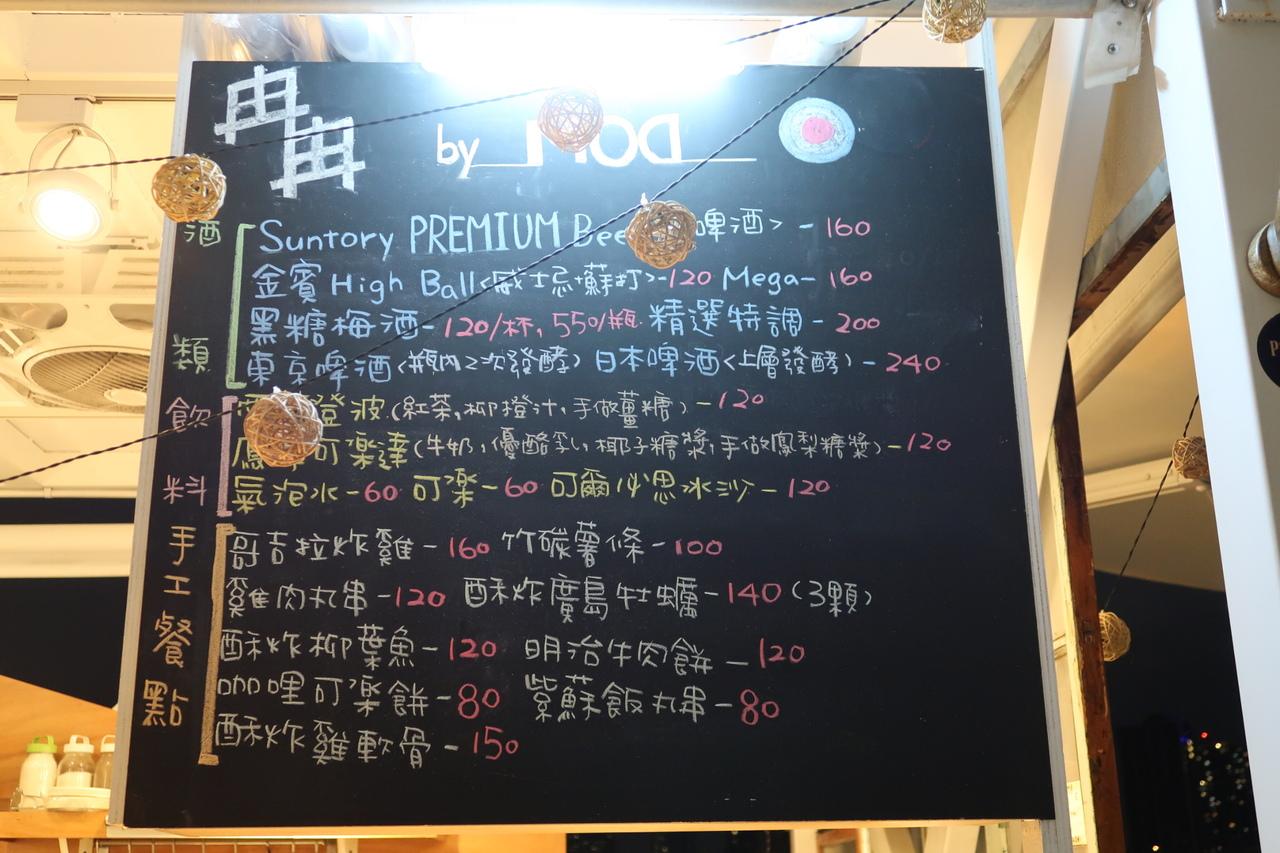 冉冉 by
酒類
Suntory PREMIUM 啤酒> - 160
金賓 High Ball<威士忌+蘇打>-120 Mega-160
黑糖梅酒-120/杯, 550/瓶 精選特調-200
東京啤酒(瓶內2次發酵) 日本啤酒<上層發酵) - 240
飲料
澄波(紅茶,柳橙汁,手做薑糖) - 120
可楽達(牛奶,優酪乳,椰子糖漿,手做鳳梨糖漿)-120
氣泡水-60 可楽-60 可爾必思冰沙-120
手工餐點
哥吉拉炸雞-160 竹碳薯條-100
雞肉丸串-120 酥炸廣島牡蠣-140(3顆)
酥炸柳葉魚-120 明治牛肉餅-120
咖哩可楽餅-80 紫蘇飯丸串-80
酥炸雞軟骨-150